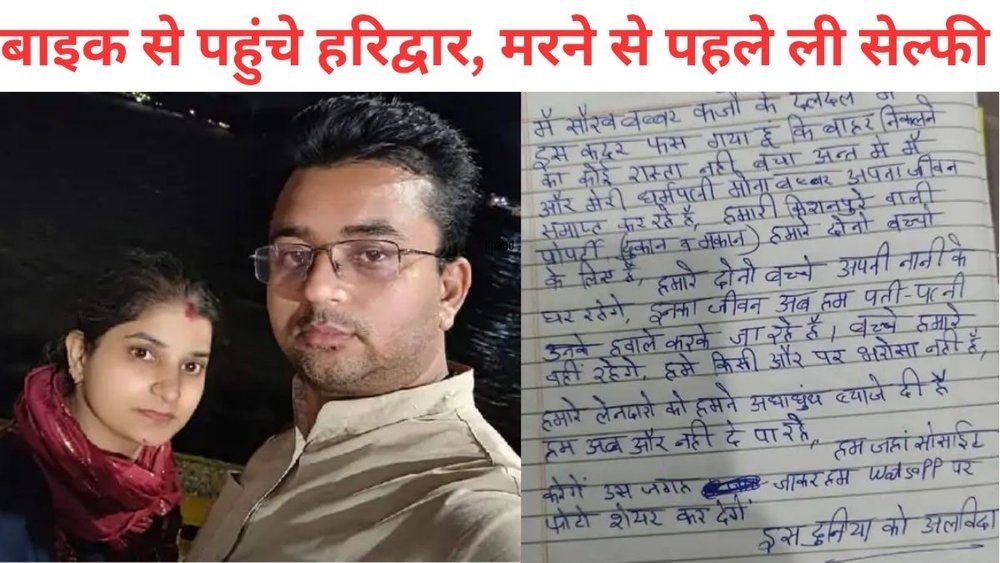 बाइक से पहुंचे हरिद्वार, मरने से पहले ली सेल्फी
मैं सौरव बब्बर कर्जो के दलदल में
इस कदर फस गया हूं कि बाहर निकलने
का कोई रास्ता नही बचा अन्त मे मैं
और मेरी धर्मपत्नी मोना बब्बर अपना जीवन
समाप्त कर रहे हैं, हमारी किशनपुरे वाली
प्रोपर्टी (दुकान व मकान) हमारे दोनो बच्चो
के लिए है, हमारे दोनो बच्चे अपनी नानी के
घर रहेगे, इनका जीवन अब हम पती-पत्नी
उनके हवाले करके जा रहे है। बच्चे हमारे
वहीं रहेगे, हमे किसी और पर भरोसा नही है,
हमारे लेनदारो को हमने अंधाधुंध ब्याजे दी है
हम अब और नही दे पा रहे, हम जहां सोसाईट
करेगें उस जगह जाकर हम watsapp पर
फोटो शेयर कर देगें
इस दुनिया को अलविदा